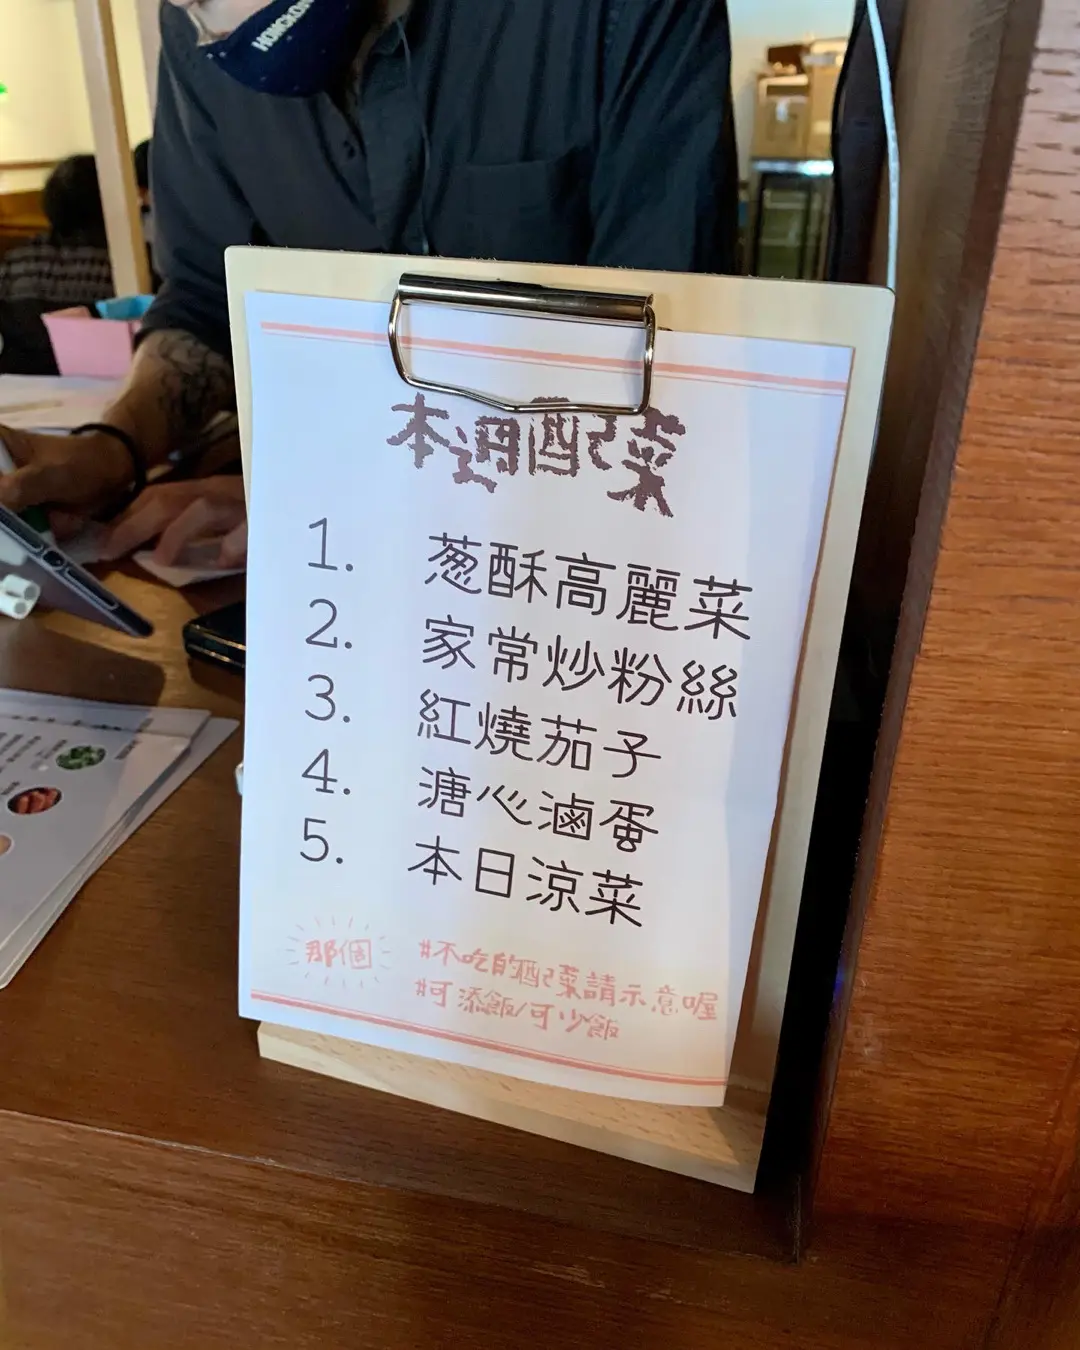 HONGKON
本週配菜
1. 葱酥高麗菜
2. 家常炒粉絲
3. 紅燒茄子
4. 溏心滷蛋
5. 本日涼菜
那個 #不吃的配菜請示意喔
#可添飯/可少飯